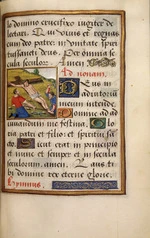 domino crucifixo iugiter de
lectari. Qui vivis et regnas
cum deo patre in unitate spiri
tussancti deus Per omnia se
cula seculor Amen.
Ad nonam.
Deus in
adiutorium
meum intende.
Domine ad ad
iuvandum me festina. Glo
ria patri et filio et spiritui sa
cto Sicut erat in principio
et nunc et semper et in secula
seculorum amen.
bi domino ter eterne glorie.
Hymnus